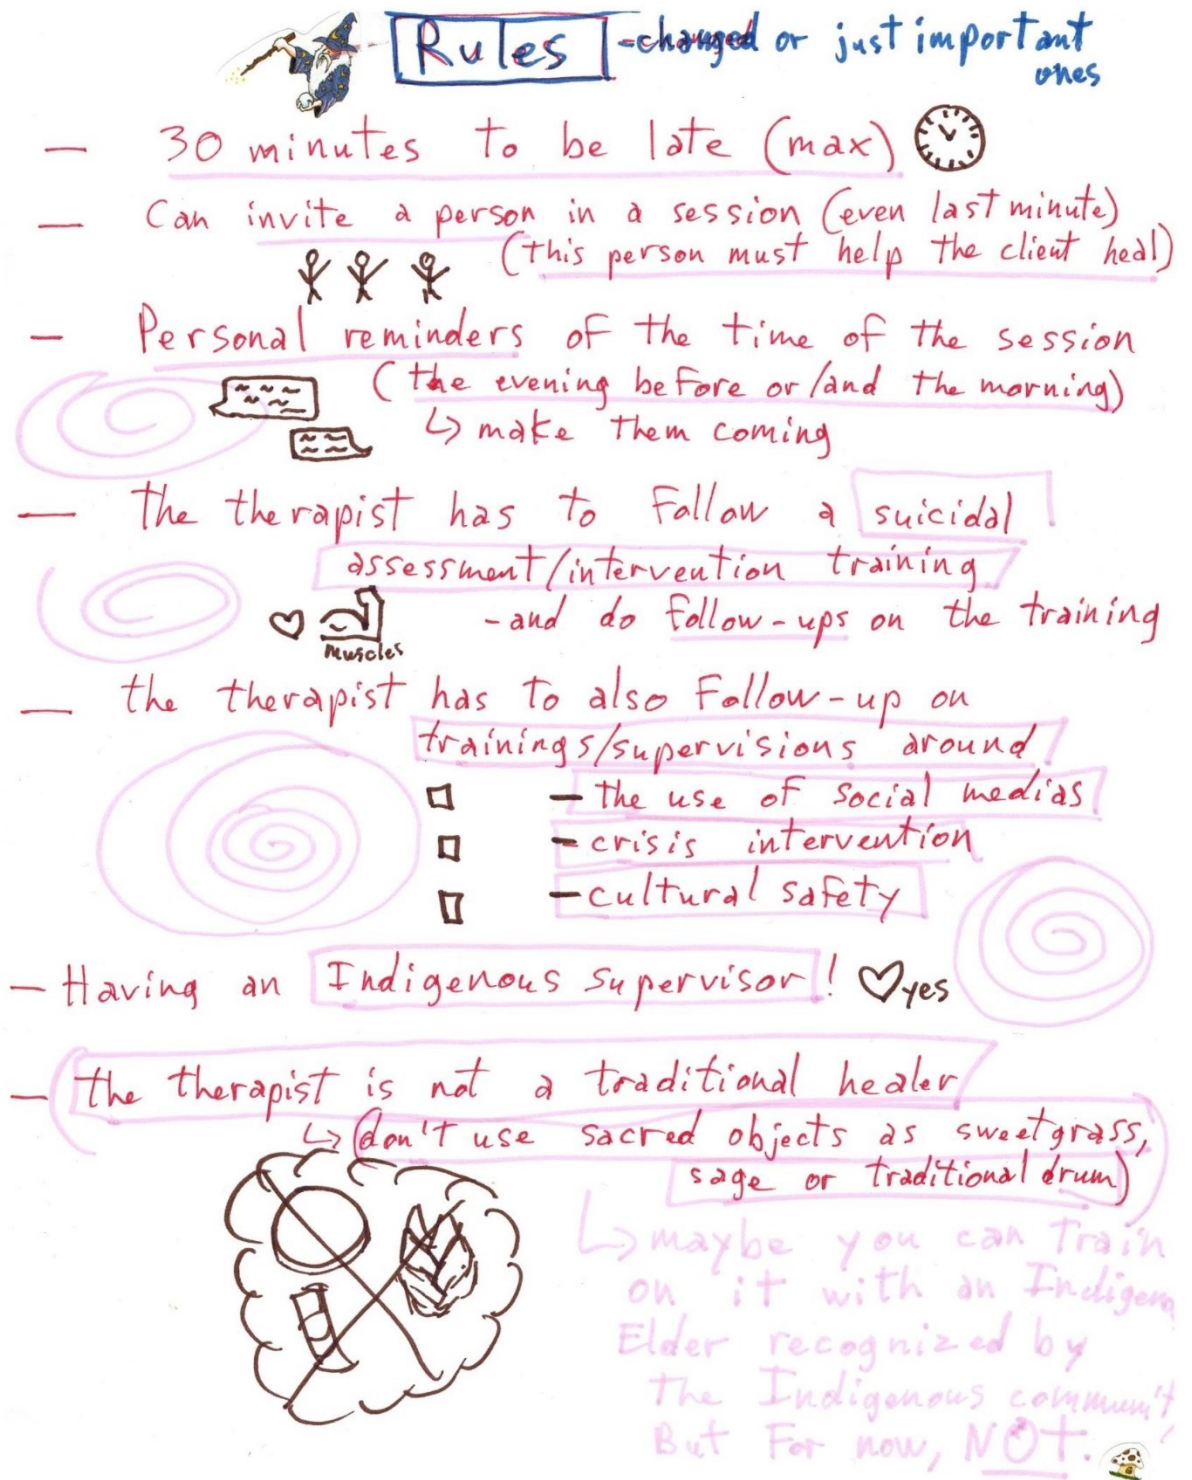 Rules - changed or just important
ones
— 30 minutes to be late (max)
— Can invite a person in a session (even last minute)
(this person must help the client heal)
— Personal reminders of the time of the session
(the evening before or/and the morning)
↳ make them coming
— the therapist has to follow a suicidal
assessment/intervention training
- and do follow-ups on the training
Muscles
— the therapist has to also follow-up on
trainings/supervisions around
— the use of social medias
— crisis intervention
— cultural safety
— Having an Indigenous supervisor! yes
— the therapist is not a traditional healer
↳ (don't use sacred objects as sweetgrass,
sage or traditional drum)
↳ maybe you can train
on it with an Indigen
Elder recognized by
the Indigenous communit
But for now, NOT.